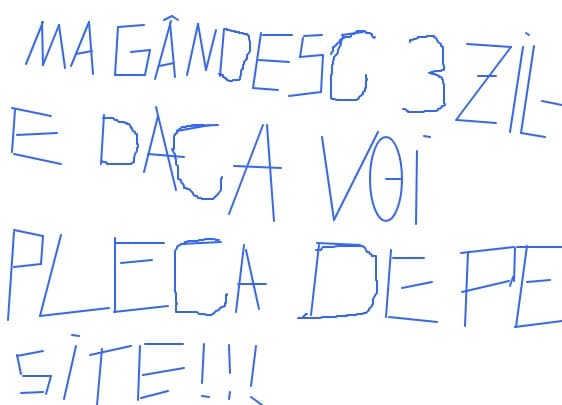 MA GÂNDESC 3 ZIL-
E DACA VOI
PLECA DE PE
SITE!!!